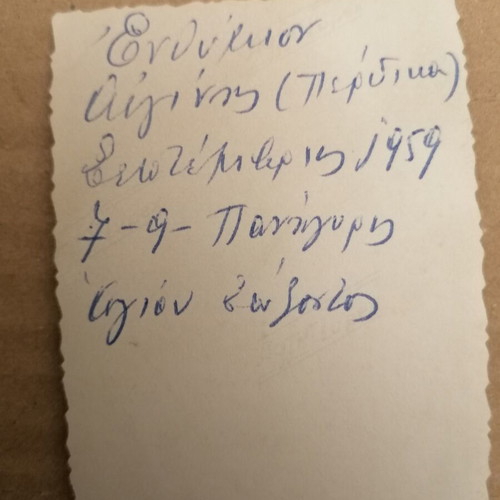 Ἐνθύμιον
Αἰγίνης (Πέρδικα)
Σεπτέμβριος 1959
7-9- Πανήγυρις
Ἁγίου Σώζοντος